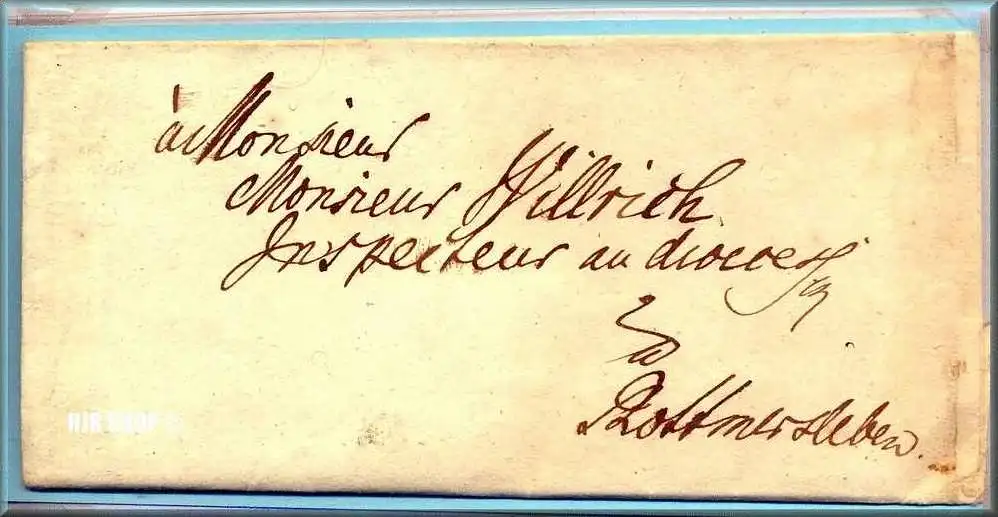 à Monsieur
Monsieur Willrich
Inspecteur au dioces
à
Rottmersleben.
HJR SHOP